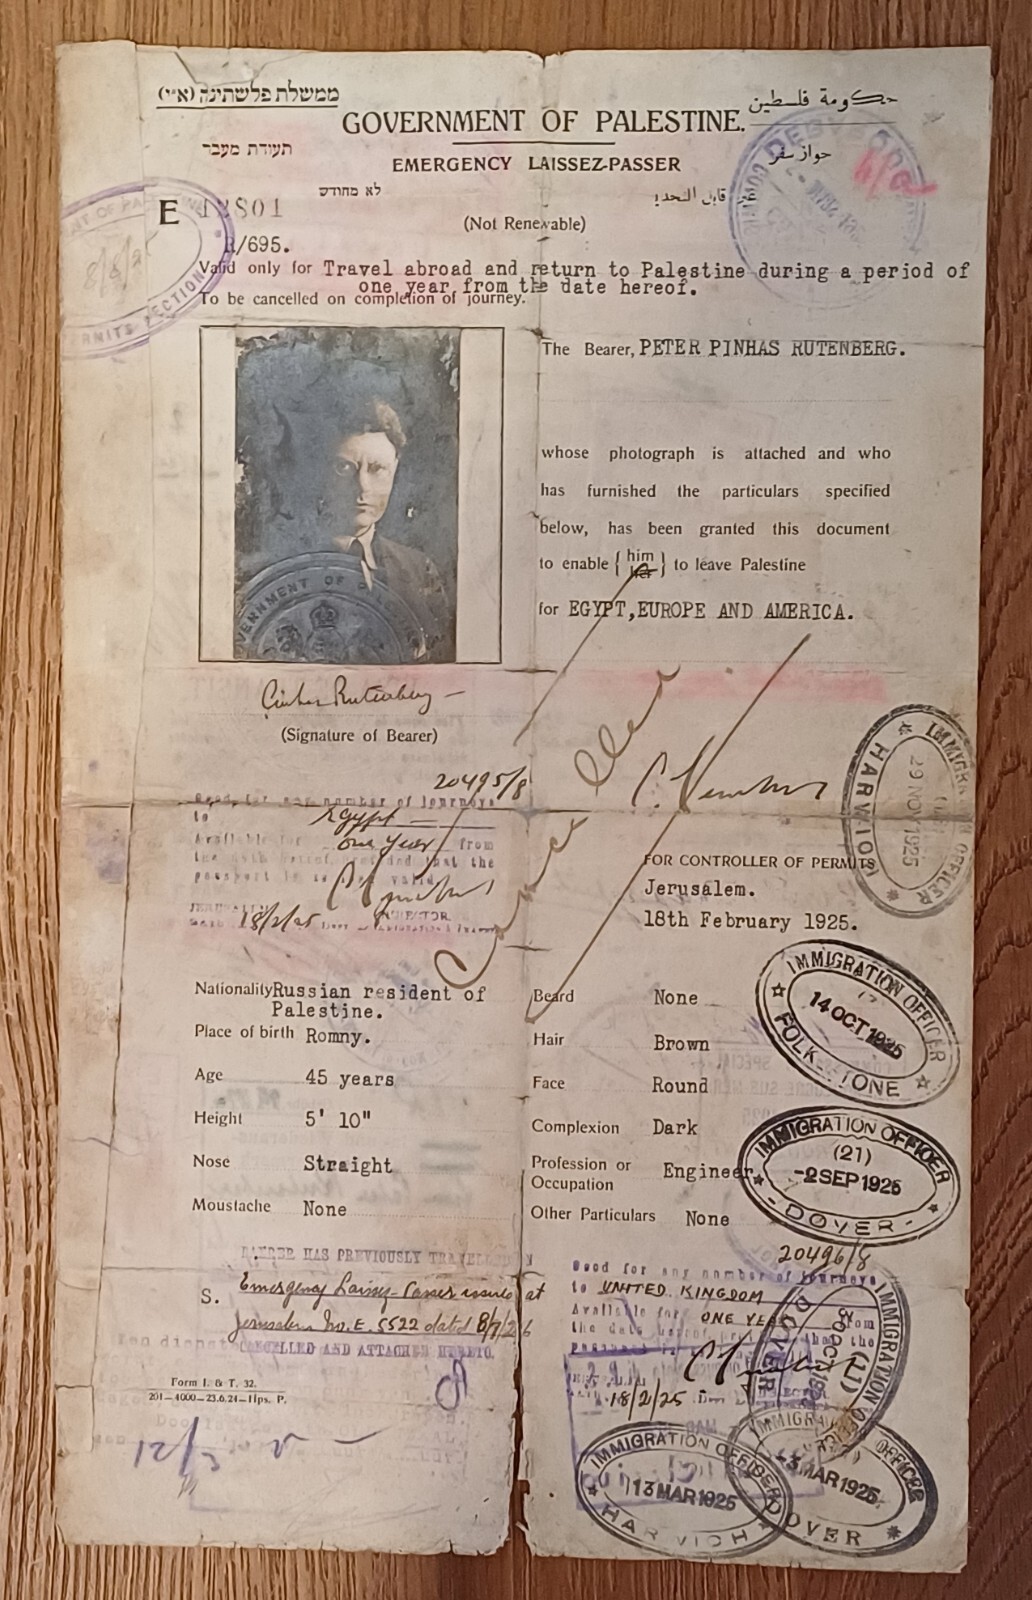 ממשלת פלשתינה (א״י)
حكومة فلسطين
GOVERNMENT OF PALESTINE.
תעודת מעבר
EMERGENCY LAISSEZ-PASSER
جواز سفر
לא מחודש
E 12801
(Not Renewable)
R/695.
Valid only for Travel abroad and return to Palestine during a period of
one year from the date hereof.
To be cancelled on completion of journey.
The Bearer, PETER PINHAS RUTENBERG.
whose photograph is attached and who
has furnished the particulars specified
below, has been granted this document
to enable { him her } to leave Palestine
for EGYPT, EUROPE AND AMERICA.
Pinhas Rutenberg
(Signature of Bearer)
Cancelled
20495/8
Good for any number of journeys
to Egypt
Available for one year from
the
passport is valid
JERUSALEM
18/2/25
FOR CONTROLLER OF PERMITS
Jerusalem.
18th February 1925.
IMMIGRATION OFFICER
29 NOV 1925
HARWICH
Nationality Russian resident of
Palestine.
Place of birth Romny.
Age 45 years
Height 5' 10"
Nose Straight
Moustache None
Beard None
Hair Brown
Face Round
Complexion Dark
Profession or
Occupation Engineer
Other Particulars None
IMMIGRATION OFFICER
14 OCT 1925
FOLKESTONE
IMMIGRATION OFFICER
(21)
-2 SEP 1925
DOVER
BEARER HAS PREVIOUSLY TRAVELLED
S. Emergency Laissez-Passer issued at
Jerusalem No. E. 5522 dated 8/7/26
CANCELLED AND ATTACHED HERETO.
Form I. & T. 32.
201—4000—23.6.24—Hps. P.
12/3
20496/8
Good for any number of journeys
to UNITED KINGDOM
Available for ONE YEAR from
the date hereof that the
18/2/25
IMMIGRATION OFFICER
(11)
DOVER
IMMIGRATION OFFICER
13 MAR 1925
HARWICH
IMMIGRATION OFFICER
-3 MAR 1925
DOVER